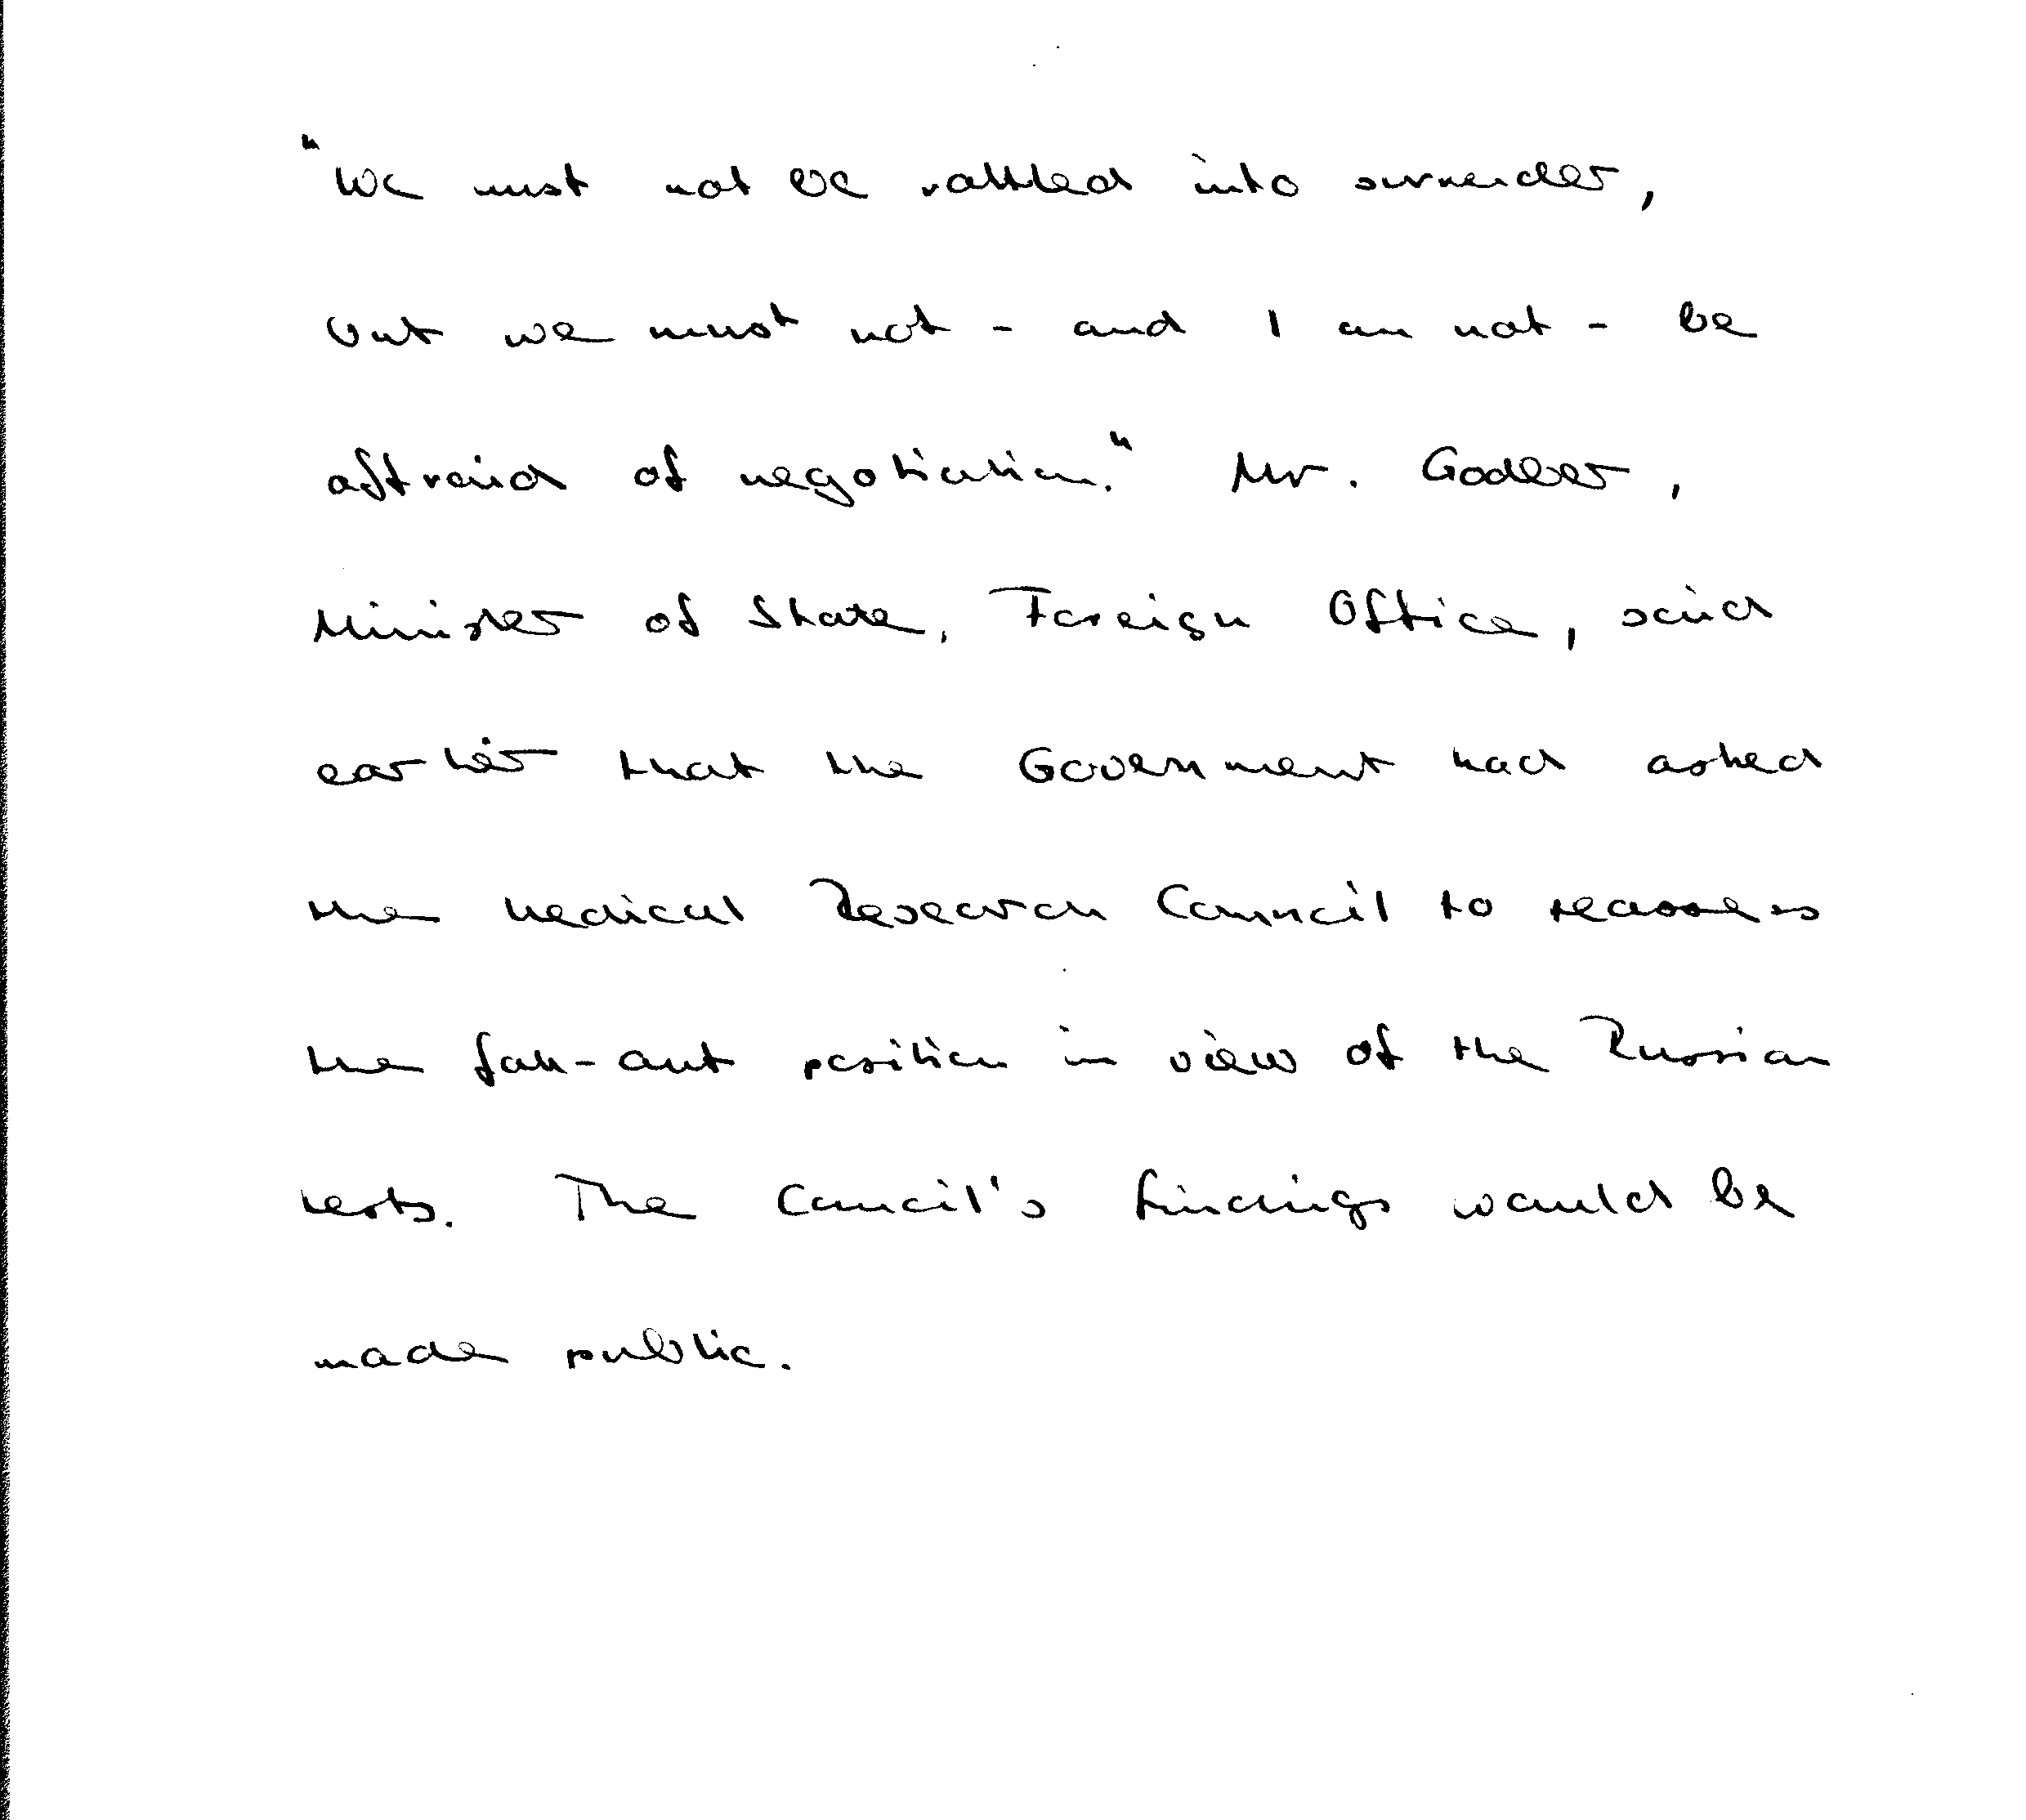 "We must not be rattled into surrender,
but we must not - and I am not - be
affraid of negotiation." Mr. Godber,
Minister of State, Foreign Office, said
earlier that the Government had asked
the Medical Research Council to reassess
the fall-out position in view of the Russian
tests. The Council's findings would be
made public.